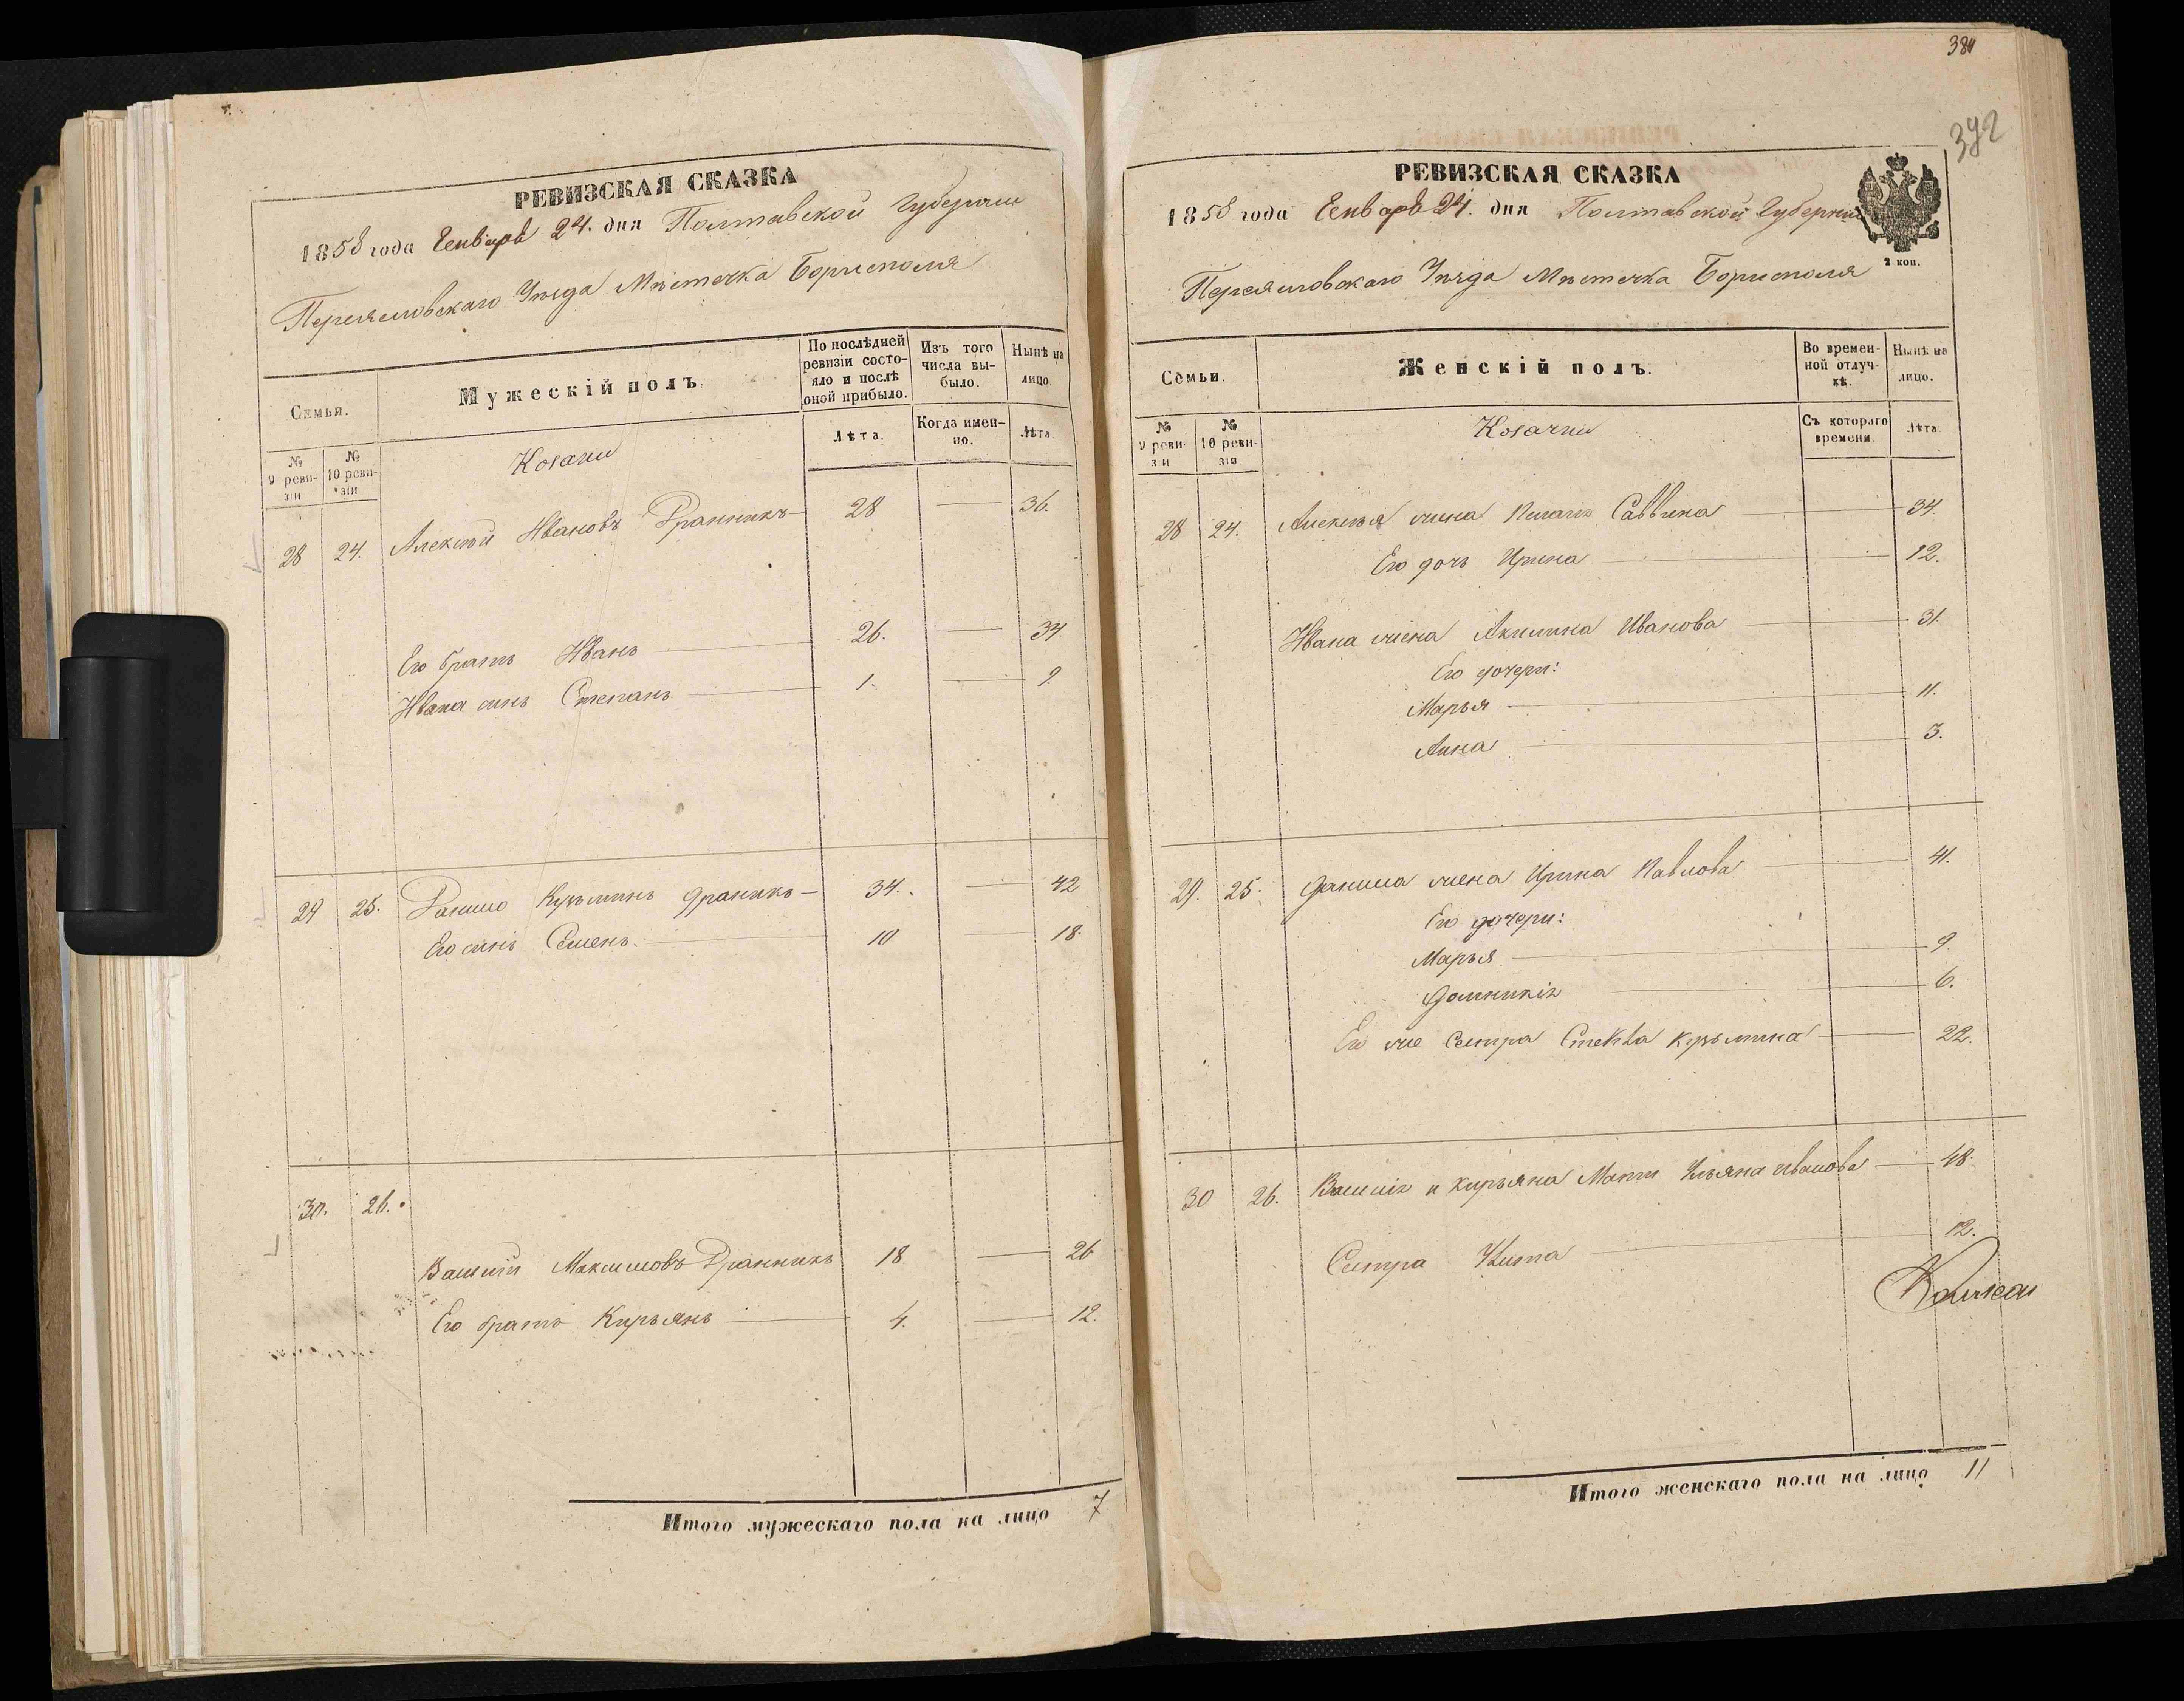 РЕВИЗСКАЯ СКАЗКА
1858 года Генваря 24. дня Полтавской Губернии
Переяславскаго Уезда Мѣстечка Борисполя
Семья.
Мужескій полъ.
По послѣдней ревизіи состояло и послѣ оной прибыло.
Изъ того числа выбыло.
Нынѣ на лицо.
№ 9 ревизіи
№ 10 ревизіи
Козаки
Лѣта.
Когда именно.
Лѣта
28 24. Алексѣй Ивановъ Дранникъ 28 — 36.
Его братъ Иванъ 26. — 34.
Ивана синъ Степанъ 1. — 9.
29 25. Данило Кузьминъ Драникъ 34. — 42
Его синъ Семенъ. 10 — 18.
30. 26.
Василій Максимовъ Дранникъ 18 — 26
Его братъ Кирьянъ 4. — 12.
Итого мужескаго пола на лицо 7
381
392
РЕВИЗСКАЯ СКАЗКА
1858 года Генваря 24. дня Полтавской Губернии
2 коп.
Переяславскаго Уезда Мѣстечка Борисполя
Семьи.
Женскій полъ.
Во временной отлучкѣ.
Нынѣ на лицо.
№ 9 ревизіи
№ 10 ревизіи
Козачки
Съ котораго времени.
Лѣта
28 24. Алексѣя жена Пелагія Саввина 34.
Его дочь Ирина 12.
Ивана жена Акилина Иванова 31.
Его дочери:
Марья 11.
Анна 3.
29. 25. Данила жена Ирина Павлова 41.
Его дочери:
Марья 9.
Домникія 6.
Его же сестра Кузьмина 22.
30 26. Василія и Кирьяна Мати Ульяна Иванова 48.
Сестра 12.
Итого женскаго пола на лицо 11